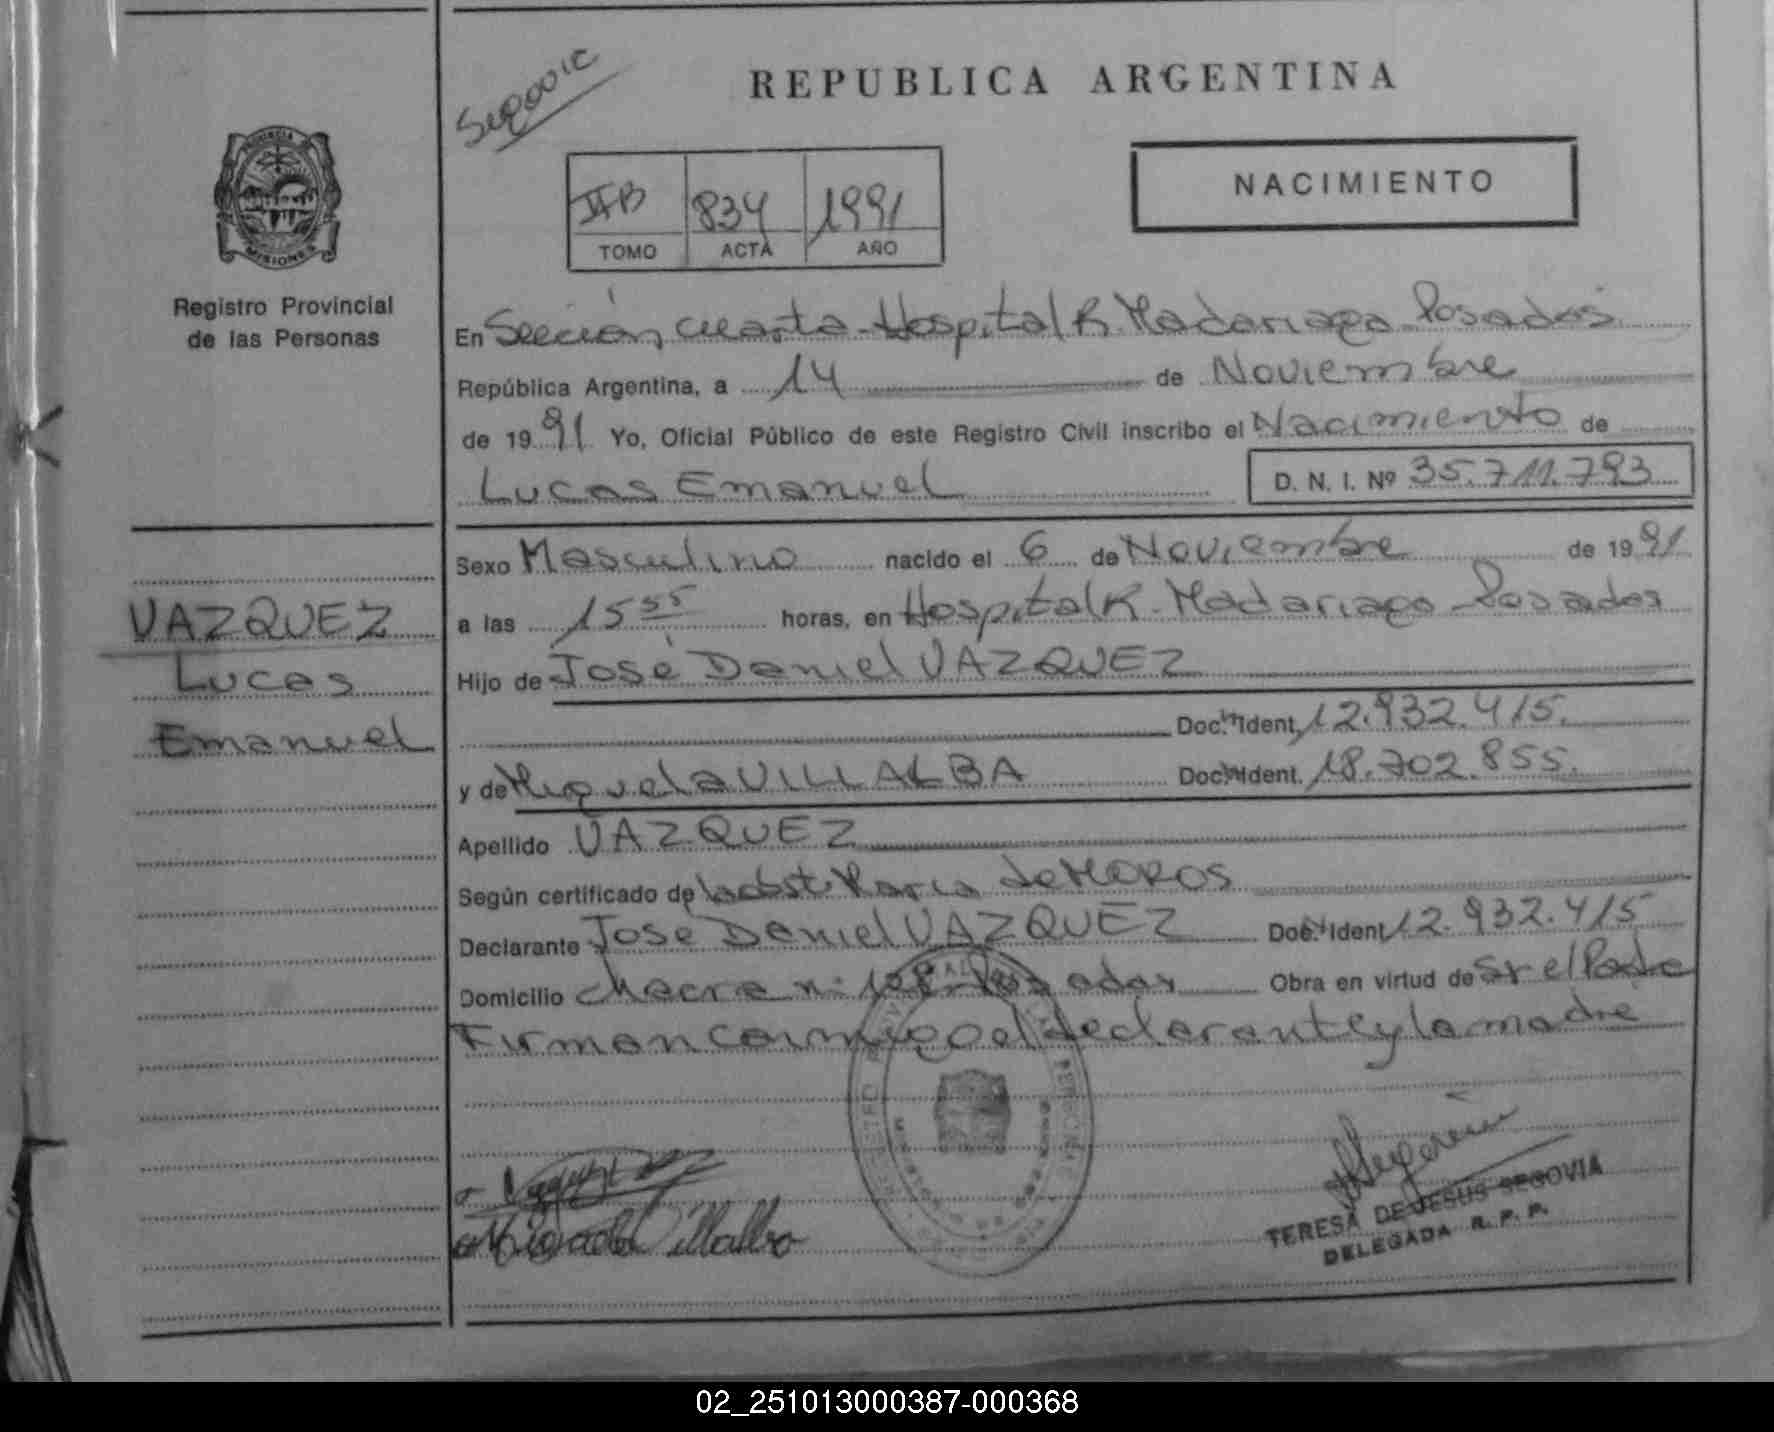 REPUBLICA ARGENTINA
PROVINCIA
MISIONES
Registro Provincial
de las Personas
NACIMIENTO
IIB 834 1991
TOMO ACTA AÑO
En Sección cuarta - Hospital R. Madariaga Posadas
República Argentina, a 14 de Noviembre
de 1991 Yo, Oficial Público de este Registro Civil inscribo el Nacimiento de
Lucas Emanuel D. N. I. Nº 35.711.793
Sexo Masculino nacido el 6 de Noviembre de 1991
VAZQUEZ
Lucas
Emanuel
a las 15 55 horas, en Hospital R. Madariaga - Posadas
Hijo de José Daniel VAZQUEZ
Doc. Ident. 12.932.415.
y de Miguela VILLALBA Doc. Ident. 18.702.855.
Apellido VAZQUEZ
Según certificado de la obst. Maria de MOROS
Declarante José Daniel VAZQUEZ Doc. Ident. 12.932.415
Domicilio chacra n: Posadas Obra en virtud de Sr el Padre
Firman conmigo el declarante y la madre
TERESA DE JESUS SEGOVIA
DELEGADA R. P. P.
02_251013000387-000368